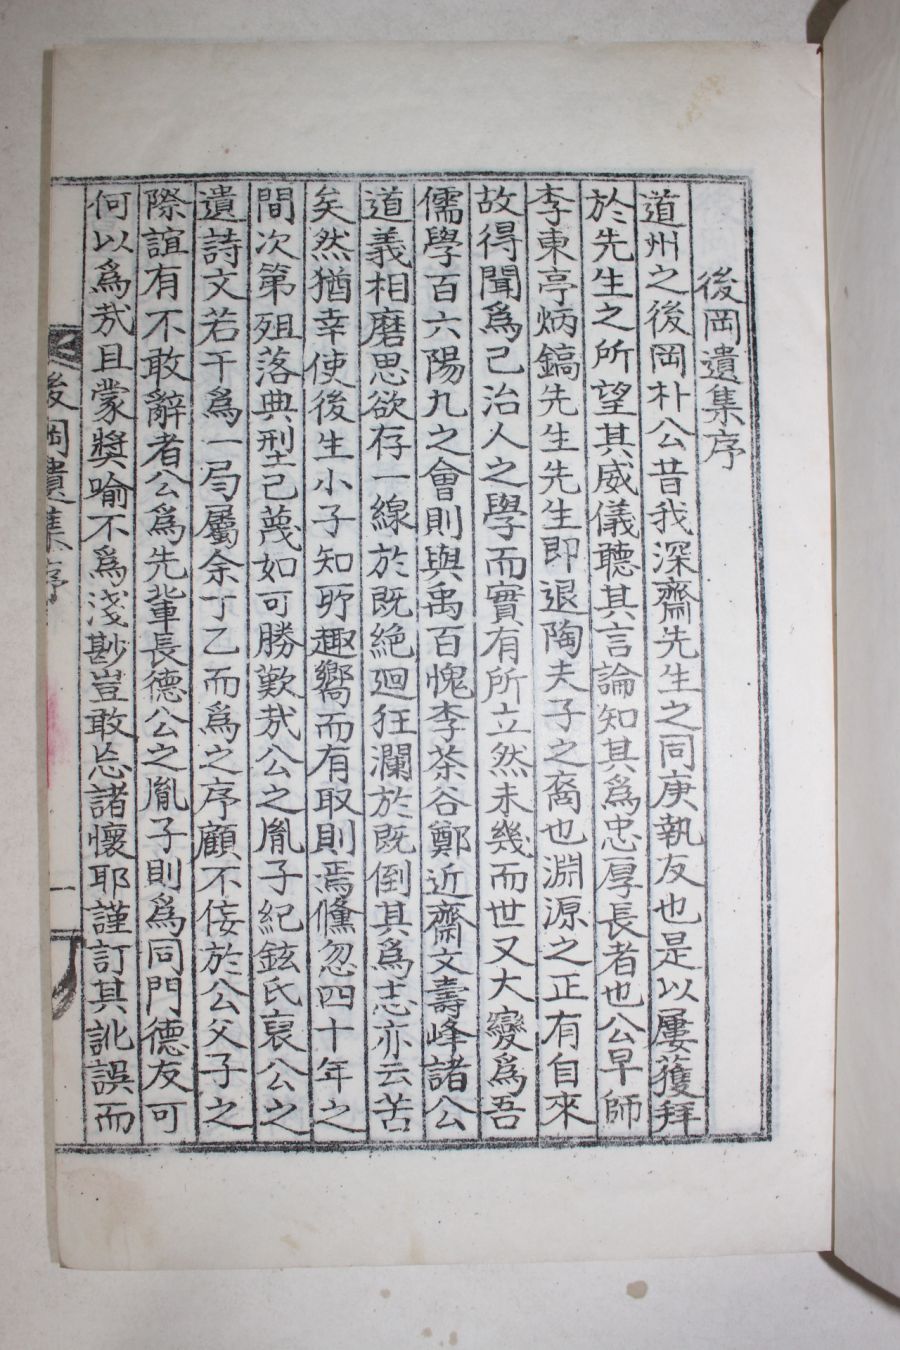 後岡遺集序
道州之後岡朴公昔我深齋先生之同庚執友也是以屢獲拜
於先生之所望其威儀聽其言論知其爲忠厚長者也公早師
李東亭炳鎬先生先生即退陶夫子之裔也淵源之正有自來
故得聞爲己治人之學而實有所立然未幾而世又大變爲吾
儒學百六陽九之會則與禹百愧李茶谷鄭近齋文壽峰諸公
道義相磨思欲存一線於既絶迴狂瀾於既倒其爲志亦云苦
矣然猶幸使後生小子知所趣嚮而有取則焉儵忽四十年之
間次第殂落典型已蔑如可勝歎哉公之胤子紀鉉氏裒公之
遺詩文若干爲一局屬余丁乙而爲之序顧不侫於公父子之
際誼有不敢辭者公爲先輩長德公之胤子則爲同門德友可
何以爲哉且蒙奬喩不爲淺尠豈敢忘諸懷耶謹訂其訛誤而
後岡遺集序
一